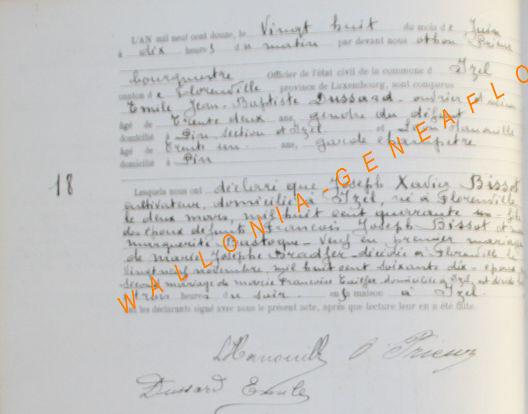 L'AN mil neuf cent douze, le Vingt huit du mois de Juin
à dix heures du matin par devant nous Othon Prieur
bourgmestre Officier de l'état civil de la commune d Izel
canton de Florenville province de Luxembourg, sont comparus
Emile Jean-Baptiste Dussard - ouvrier
âgé de Trente deux ans, gendre du défunt
domicilié à Pin section d'Izel et
âgé de Trente un ans, garde champêtre
domicilié à Pin
18
Lesquels nous ont déclaré que Joseph Xavier Bissot
cultivateur, domicilié à Izel, né à Florenville
le deux mars, mil huit cent quarante un - fils
des époux défunts François Joseph Bissot et
marguerite Bastogne - Veuf en premier mariage
de marie Josephe Bradfer - décédée à Florenville le
vingt neuf novembre mil huit cent soixante dix - époux
second mariage de marie Françoise domiciliée à Izel, est décédé
trois heures du soir en sa maison à Izel
et les déclarants signé avec nous le présent acte, après que lecture leur en a été faite.
WALLONIA-GENEAFLO
LHanouille O. Prieur
Dussard Emile